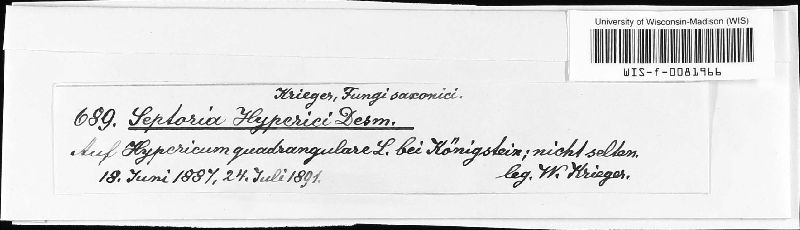 University of Wisconsin-Madison (WIS)
WIS-f-0081966
Krieger, Fungi saxonici.
689. Septoria Hyperici Desm.
Auf Hypericum quadrangulare L. bei Königstein; nicht selten.
18. Juni 1887, 24. Juli 1891. leg. W. Krieger.